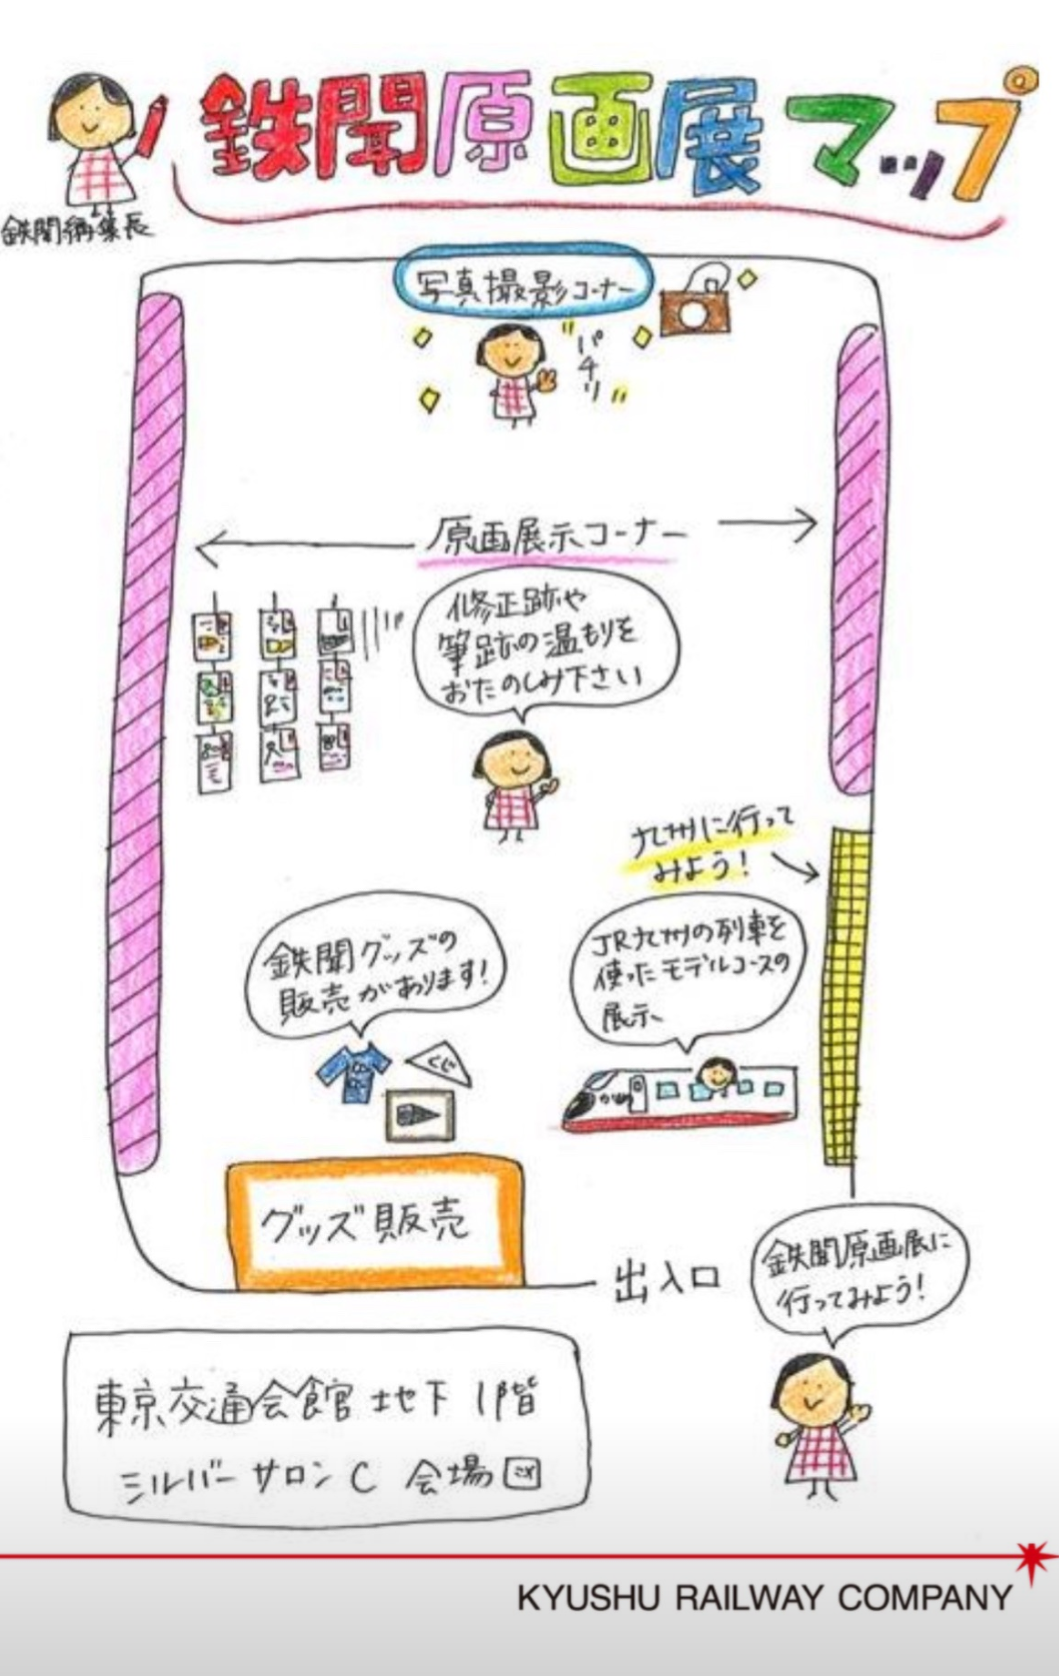 鉄聞原画展マップ
鉄聞編集長
写真撮影コーナー
パチリ
原画展示コーナー
修正跡や
筆跡の温もりを
おたのしみ下さい
九州に行って
みよう!
鉄聞グッズの
販売があります!
JR九州の列車を
使ったモデルコースの
展示
くじ
かもめ
グッズ販売
出入口
鉄聞原画展に
行ってみよう!
東京交通会館 地下 1階
シルバーサロンC 会場図
KYUSHU RAILWAY COMPANY